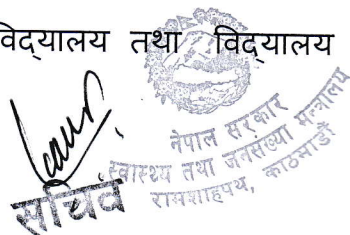 विद्यालय तथा विद्यालय
नेपाल सरकार
स्वास्थ्य तथा जनसंख्या मन्त्रालय
रामशाहपथ, काठमाडौं
सचिव